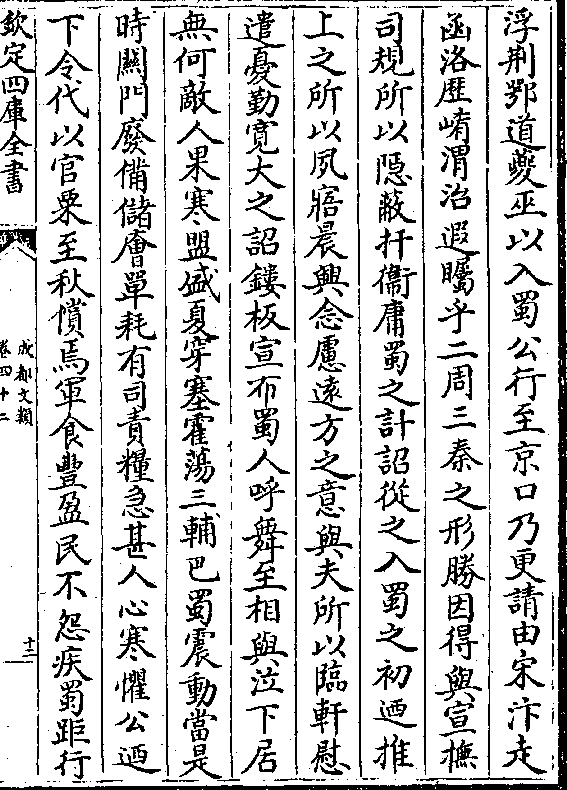 浮荆鄂道夔巫以入蜀公行至京口乃更請由宋汴走
函洛歴崤渭治遐矚乎二周三秦之形勝因得與宣撫
司規所以隠蔽扞衞庸蜀之計詔從之入蜀之初廼推
上之所以夙寤晨興念慮逺方之意與夫所以臨軒慰
遣憂勤寛大之詔鏤板宣布蜀人呼舞至相與泣下居
無何敵人果寒盟盛夏穿塞霍蕩三輔巴蜀震動當是
時闗門廢備儲㑹單耗有司責糧急甚人心寒懼公廼
下令代以官粟至秋償焉軍食豐盈民不怨疾蜀距行
欽定四庫全書
成都文類
卷四十二
十二